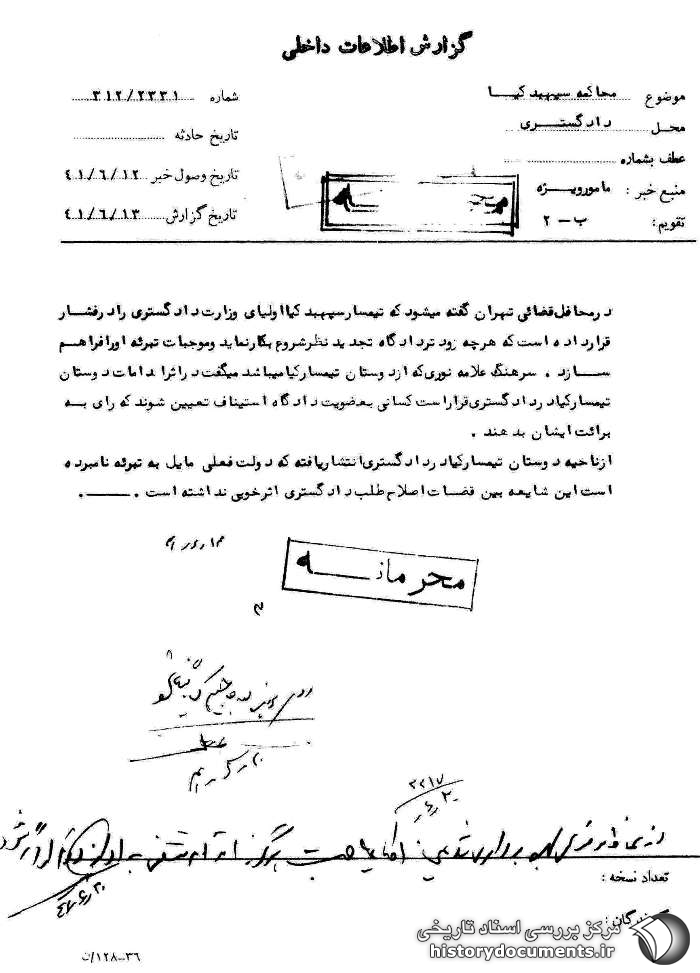 گزارش اطلاعات داخلی
موضوع محاکمه سپهبد کیا
شماره ۳۱۲/۲۳۳۱
محل دادگستری
تاریخ حادثه
عطف بشماره
تاریخ وصول خبر ۴۱/۶/۱۲
منبع خبر : مامورویژه
تاریخ گزارش ۴۱/۶/۱۳
تقویم : ب-۲
درمحافل قضائی تهران گفته میشود که تیمسارسپهبد کیااولیای وزارت دادگستری را درفشار
قرارداده است که هرچه زودتردادگاه تجدید نظرشروع بکارنماید وموجبات تبرئه اورافراهم
سازد . سرهنگ علامه نوری که ازدوستان تیمسارکیامیباشد میگفت دراثراقدامات دوستان
تیمسارکیادردادگستری قراراست کسانی بعضویت دادگاه استیناف تعیین شوند که رای به
برائت ایشان بدهند .
ازناحیه دوستان تیمسارکیادردادگستری انتشاریافته که دولت فعلی مایل به تبرئه نامبرده
است این شایعه بین قضات اصلاح طلب دادگستری اثرخوبی نداشته است .
محرمانه
۲۲۱۷
تعداد نسخه :
گیرندگان :
۳۶-۱۲۸/ت
مرکز بررسی اسناد تاریخی
historydocuments.ir